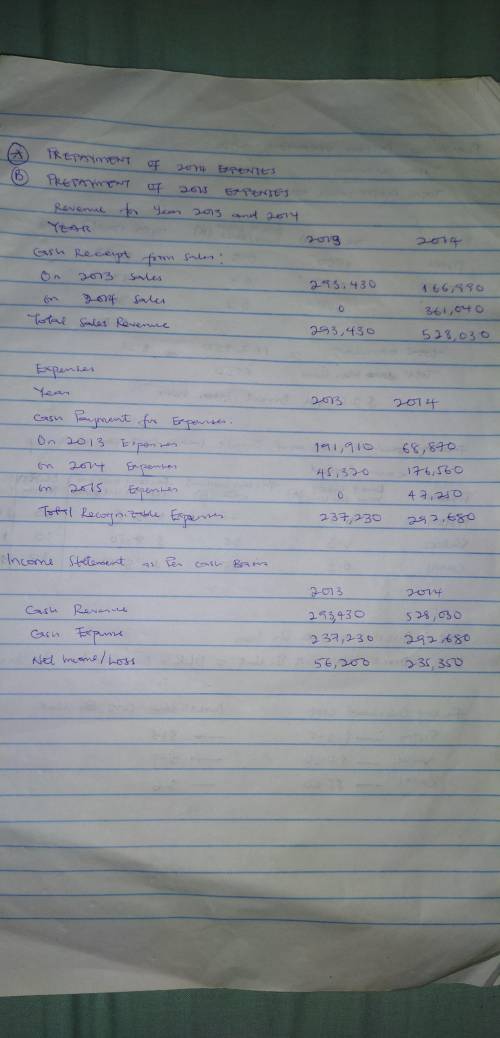 (A) PREPAYMENT OF 2014 EXPENSES
(B) PREPAYMENT OF 2015 EXPENSES
Revenue for Year 2013 and 2014
YEAR 2013 2014
Cash Receipt from Sales:
On 2013 Sales 293,430 166,990
on 2014 Sales 0 361,040
Total Sales Revenue 293,430 528,030
Expenses
Year 2013 2014
Cash Payment for Expenses.
On 2013 Expenses 191,910 68,870
on 2014 Expenses 45,320 176,560
on 2015 Expenses 0 47,250
Total Recognizable Expenses 237,230 292,680
Income Statement as Per Cash Basis
2013 2014
Cash Revenue 293,430 528,030
Cash Expense 237,230 292,680
Net Income/Loss 56,200 235,350